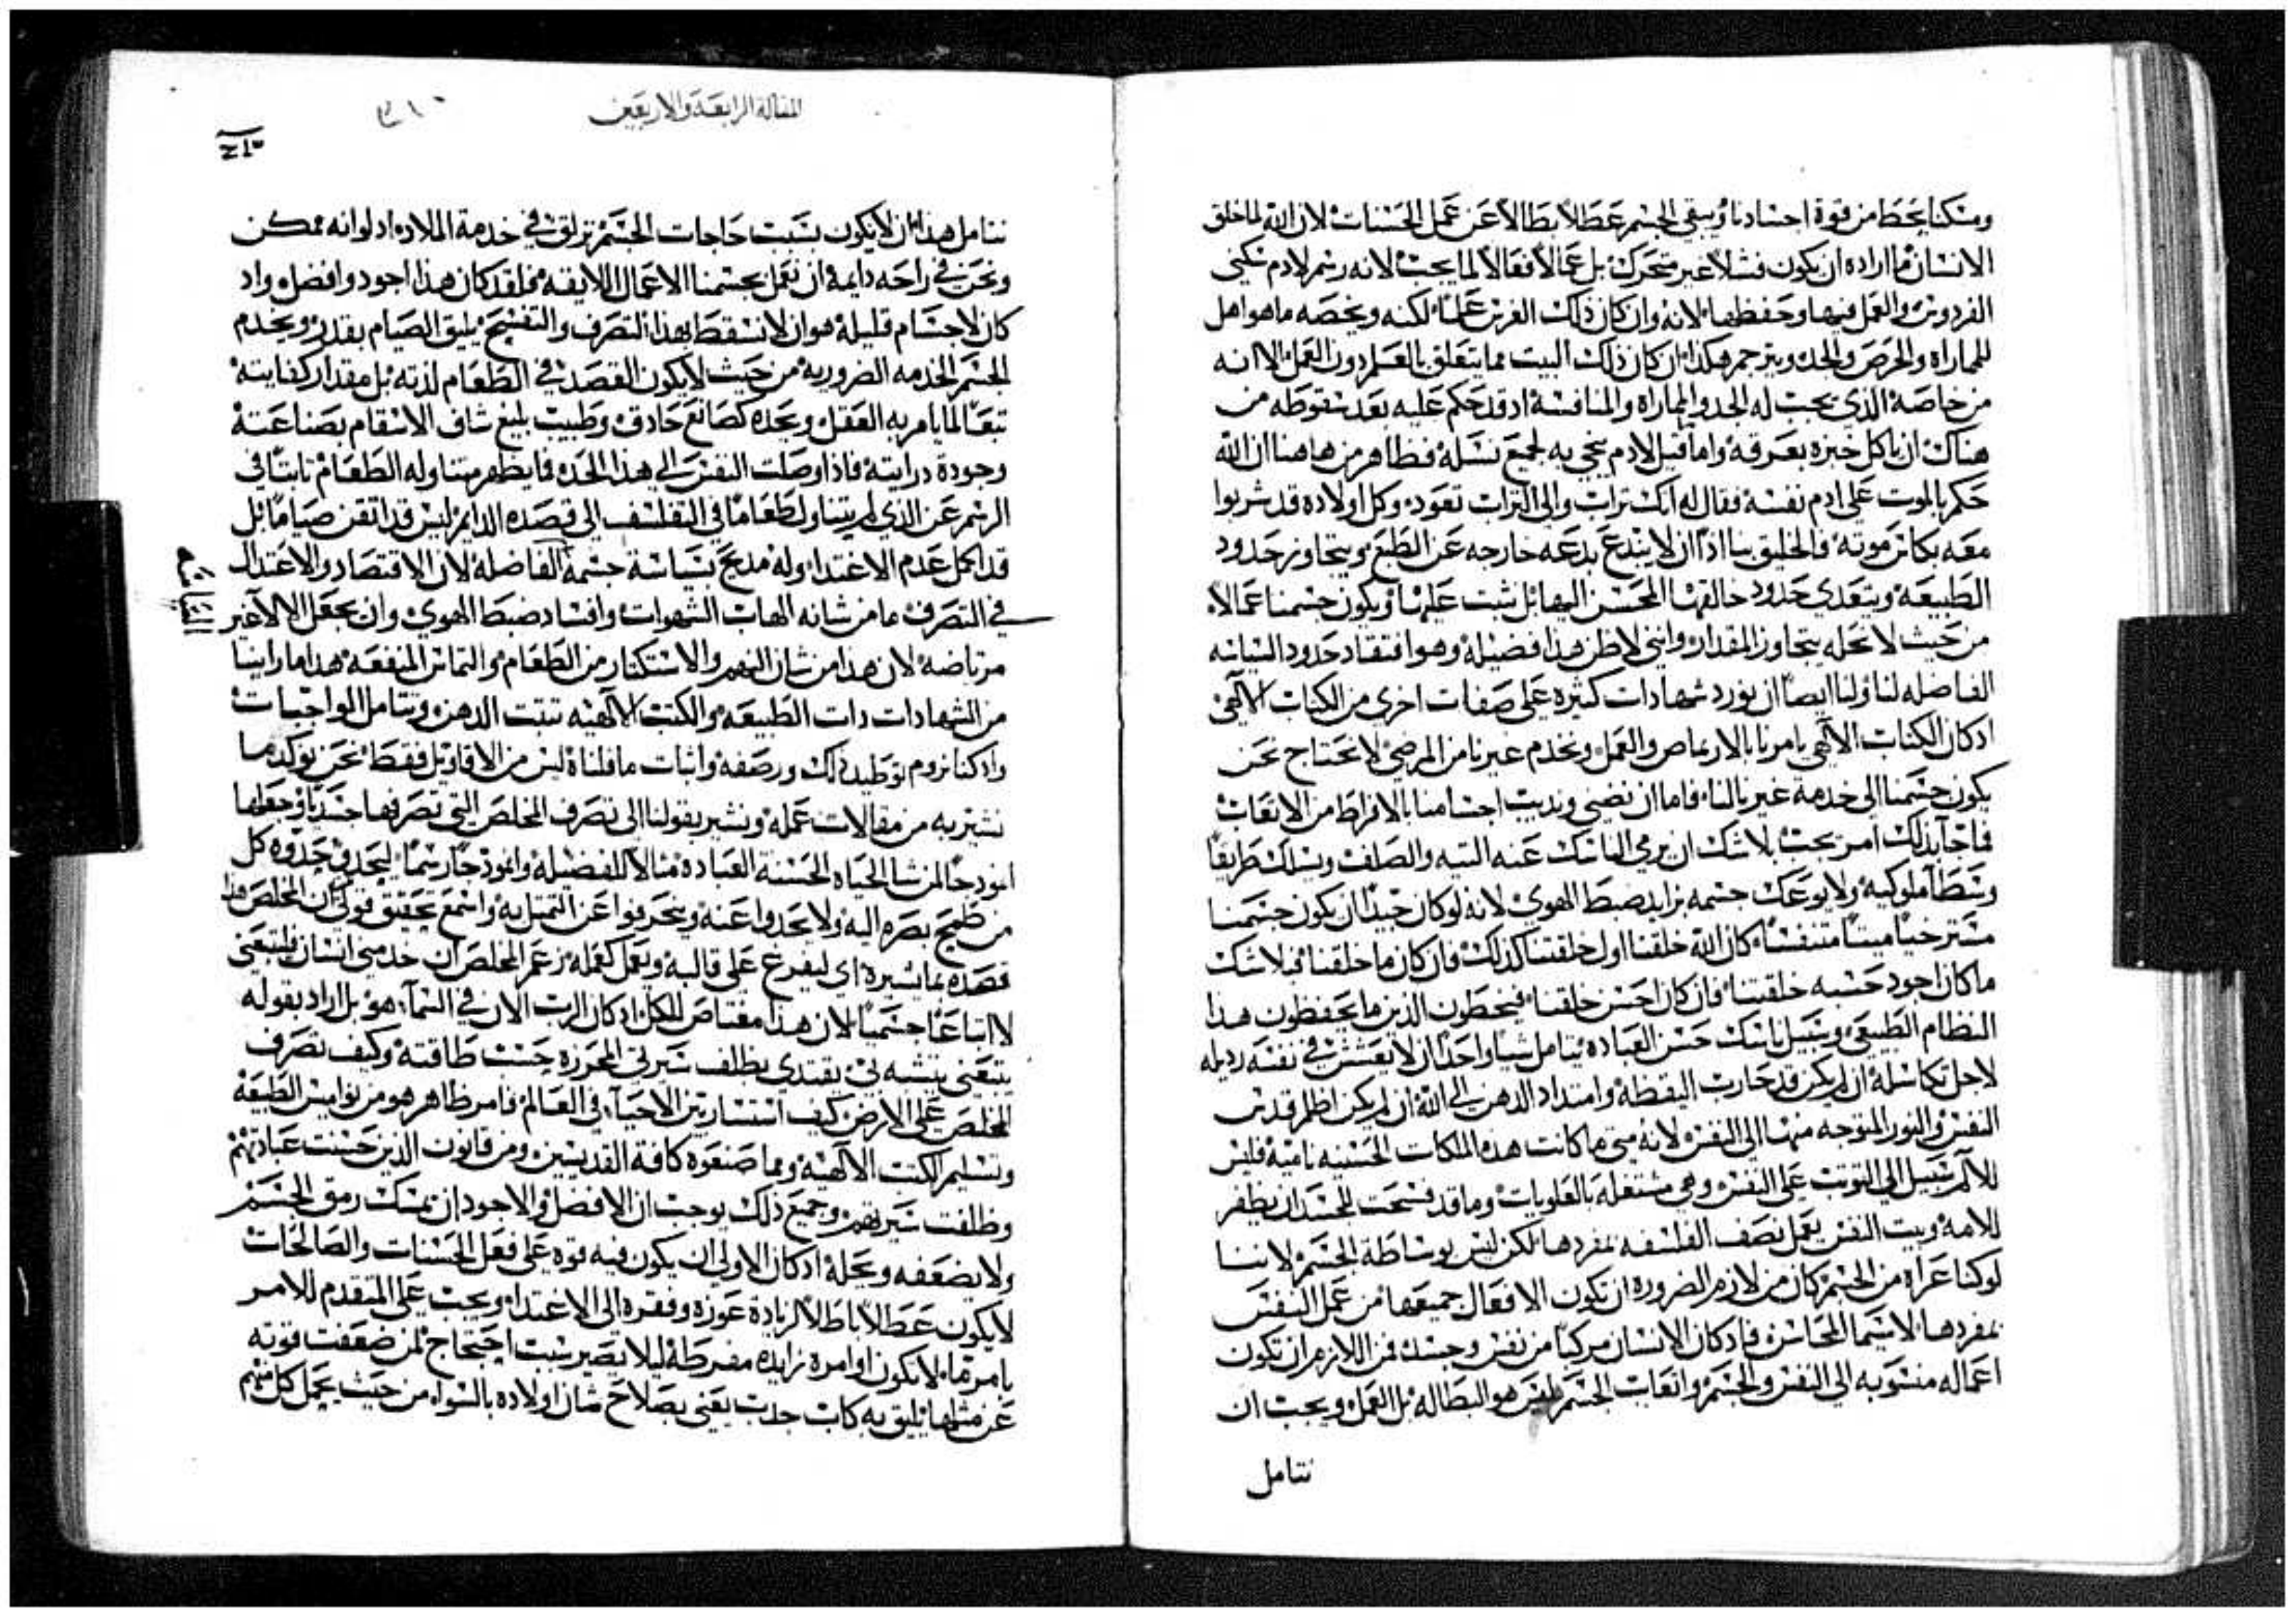 ومسكنا يحط من قوة اجسادنا ويبقى الجسم عطالاً بطالاً عن عمل الحسنات لان الله لما خلق
الانسان ما اراده ان يكون فشلاً غير متحرك بل عمالاً فعالاً لما يجب لانه رسم لادم سكنى
الفردوس والعمل فيها وحفظها لانه وان كان ذلك الغرس علماً لكنه ويخصه ما هو اهل
للمماراة والحرص والجد ويترجم هكذا ان كان ذلك البيت مما يتعلق بالعلم دون العمل الا انه
من خاصة الذي يجب له الجد والمماراة والمنافسة اد قد حكم عليه بعد سقوطه من
هناك ان ياكل خبزه بعرقه واما قيل لادم نحي به لجميع نسله فظاهر من هاهنا ان الله
حكم بالموت على ادم نفسه فقال له انك تراب والى التراب تعود وكل اولاده قد شربوا
معه بكاس موته فالخليق بنا اذاً ان لا نبتدع بدعه خارجه عن الطبع ويتجاوز حدود
الطبيعه ويتعدى حدود خالقها المحسن اليها بل نثبت عليها ويكون جسمنا عمالاً
من حيث لا نحله بتجاوز المقدار وانني لاظن هذا فضيلة وهو افتقاد حدود السياسه
الفاضله لنا ولنا ايضاً ان نورد شهادات كثيره على صفات اخرى من الكتاب الالهي
ادكان الكتاب الالهي يامرنا بالارتماص والعمل ونخدم غيرنا من المرضى لا نحتاج نحن
يكون جسمنا الى خدمة غيرنا لنا فاما ان نضني ونديب اجسامنا بالافراط من الاتعاب
فاجاب ذلك امر يجب بلا شك ان يرمي الناسك عنه التيه والصلف ويسلك طريقاً
وسطاً ملوكية ولا يوعك جسمه بزايد ضبط الهوى لانه لو كان جيداً ان يكون جسمنا
مسترخياً ميتاً متنفساً كان الله خلقنا اول خلقتنا كذلك فان كان ما خلقنا فبلا شك
ما كان اجود حسبه خلقتنا فان كان احسن خلقنا فيخطون الذين ما يحفظون هذا
النظام الطبيعي وسبيل ناسك حسن العباده يتامل شياً واحداً ان لا يعشش في نفسه رديله
لاجل تكاسله ان لم يكن قد حارب اليقظة وامتداد الدهن الى الله ان لم يكن اظلم قدس
النفس والنور المتوجه منها الى النفس لانه متى ما كانت هذه الملكات الحسنه نامية فليس
للالم سبيل الى التوتب على النفس وهي مشتغله بالعلويات وما قد فسحت للجسد ان يظفر
للامه وبيت النفس يعمل نصف الفلسفه بمفردها لكن ليس بوساطة الجسم لاننا
لو كنا عراة من الجسم كان من لازم الضروره ان تكون الافعال جميعها من عمل النفس
بمفردها لاسيما المحاسن فادكان الانسان مركباً من نفس وجسد فمن اللازم ان تكون
اعماله منسوبه الى النفس والجسم واتعاب الجسم ليس هو البطاله بل العمل ويجب ان
نتامل
المقالة الرابعة والاربعين
نتامل هذا ان لا يكون بسبب حاجات الجسم نزلق في خدمة الملاده اد لو انه ممكن
ونحن في راحه دايمة ان نعمل بجسمنا الاعمال اللايقه فلقد كان هذا اجود وافضل واد
كان لاجسام قليلة هو ان لا تسقط بهذا التصرف والتفسيح يليق الصيام بقدر ويخدم
الجسم الخدمه الضروريه من حيث لا يكون القصد في الطعام لذته بل مقدار كفايته
تبعاً لما يامر به العقل ونجده كصانع حادق وطبيب بليغ شاف الاسقام بصناعته
وجودة درايته فاذا وصلت النفس الى هذا الحد فما يظهر متناوله الطعام ناسياً في
الرسم عن الذي لم يتناول طعاماً في التفلسف الى قصده الدايم ليس قد اتقن صياماً بل
قد اكمل عدم الاغتداء وله مديح بسياسة جسمه الفاضلة لان الاقتصاد والاعتدال
في التصرف ما من شانه الهاب الشهوات وافساد ضبط الهوى وان يجعل الالام غير
مرتاضه لان هذا من شان النهم والاستكثار من الطعام والتماس المنفعه هذا ما راينا
من الشهادات دات الطبيعه والكتب الالهيه تتبت الدهن ويتامل الواجبات
واد كنا نروم توطيد ذلك ورصفه واثبات ما قلناه ليس من الاقاويل فقط نحن نوكد ما
نشير به من مقالات عمله ونشير بقولنا الى تصرف المخلص التي تصرفها جسدياً وجعلها
انمودجاً لمن شا الحياه الحسنه العباده مثالاً للفضيلة وانمودجاً رسماً ليحدو حدوه كل
من طمح بصره اليه ولا يحدوا عنه وينحرفوا عن التمتل به واسمع تحقيق قولي ان المخلص هذا
قصده بما اشيره اي ليفرع على قالبه ويعمل كعمله زعم المخلص ان خدمني انسان فليتبعني
لا اتباعاً جسمياً لان هذا مغتاص للكل ادكان الرب الان في السماء هو بل اراد بقوله
يتبعني يتشبه بي يقتدى بظلف سيرتي المحرزه حسب طاقته وكيف تصرف
المخلص على الارض كيف استسار بين الاحياء في العالم فامر ظاهر هو من نواميس الطبيعة
وتسليم الكتب الالهية ومما صنعوه كافة القديسين ومن قانون الذين حسنت عباداتهم
وظلفت سيرتهم وجميع ذلك يوجب ان الافضل والاجود ان يمسك رمق الجسم
ولا يضعفه ويحله ادكان الاولى ان يكون فيه قوه على فعل الحسنات والصالحات
لا يكون عطالاً باطلاً لزيادة عوزه وفقره الى الاغتداء ويجب على المتقدم للامر
يامر بها لا تكون اوامره زايده مفرطة ليلا يصير سبب احتجاج لمن ضعفت قوته
عن مثلها يليق به كاب حدب يعنى بصلاح شان اولاده بالسواء من حيث يحمل كل منهم